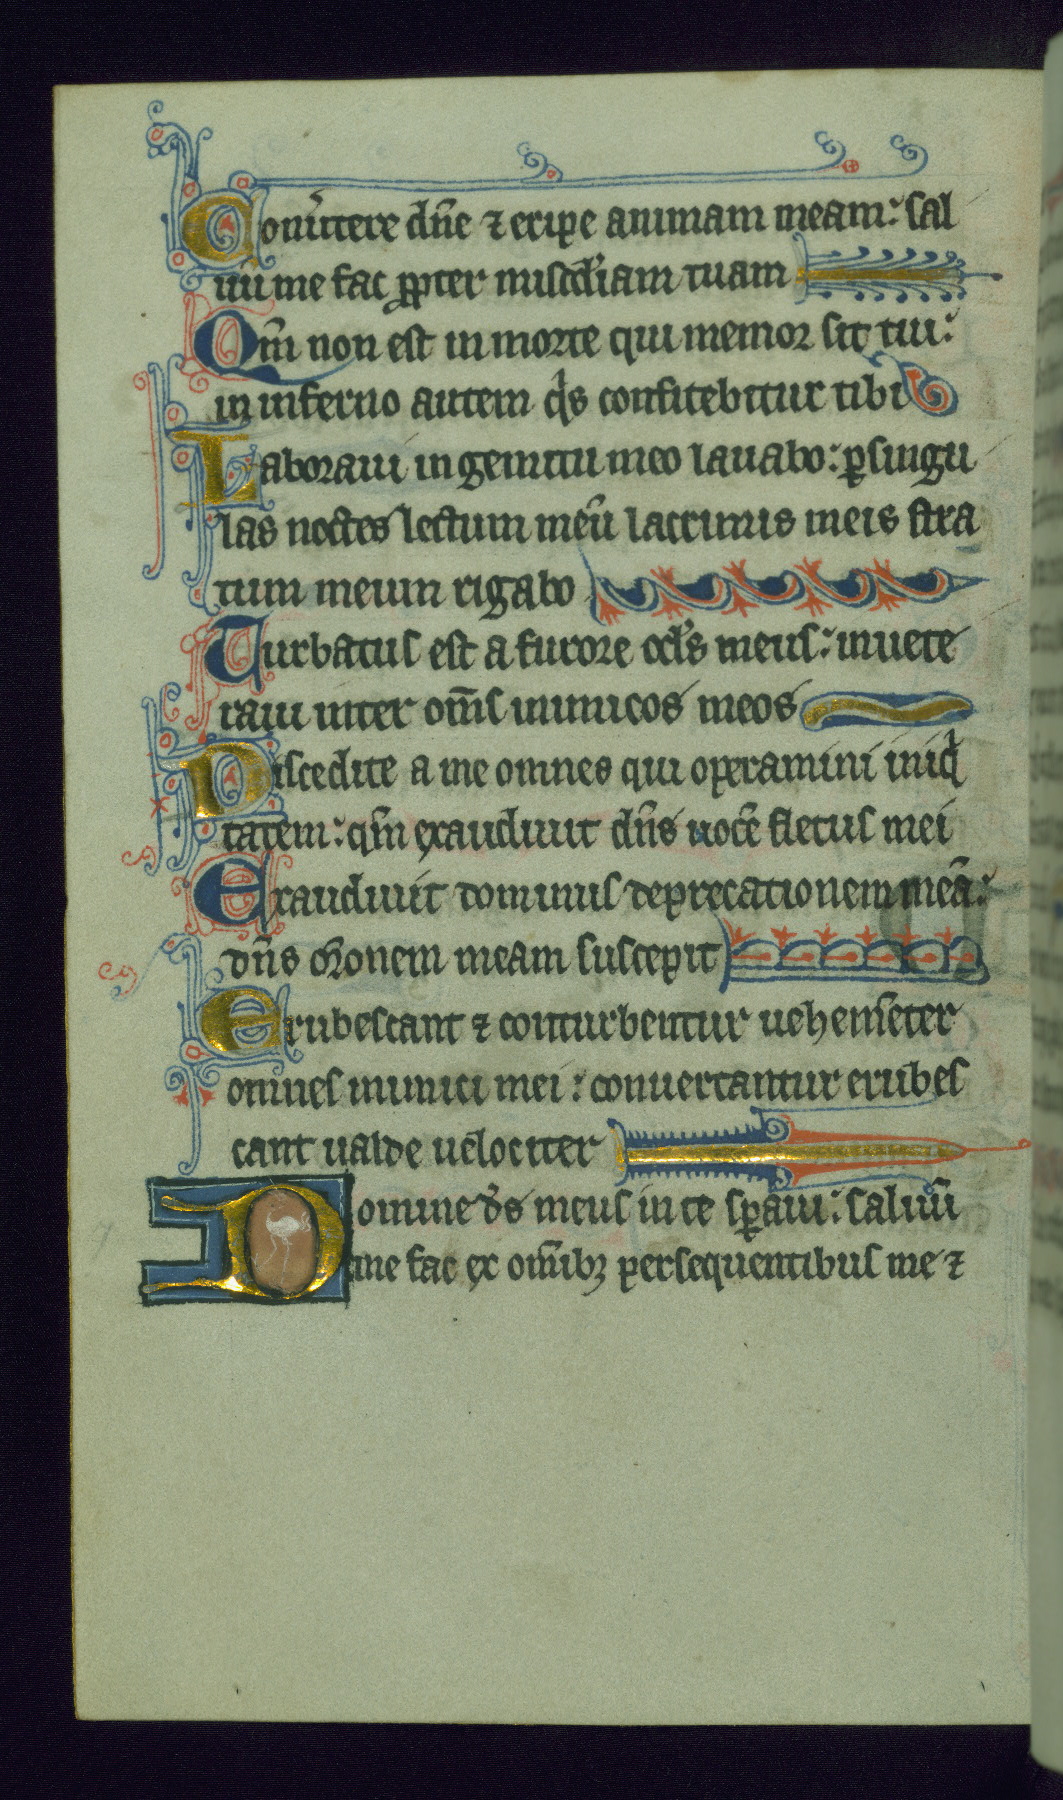 Conu̾tere dn̄e ⁊ eripe animam meam: sal
uū me fac ꝓpter misc̄diam tuam
Qm̄ non est in morte qui memor sit tui:
in inferno autem q̾s confitebitur tibi
Laboraui in gemitu meo lauabo: ꝑ singu
las noctes lectum meū lacrimis meis stra
tum meum rigabo
Turbatus est a furore ocl̾s meus: inuete
raui inter om̄s inimicos meos
Discedite a me omnes qui operamini iniq̾
tatem: qm̄ exaudiuit dn̄s uocē fletus mei
Exaudiuit dominus deprecationem meā:
dn̄s or̄onem meam suscepit
Erubescant ⁊ conturbentur uehem̄eter
omnes inimici mei: conuertantur erubes
cant ualde uelociter
Domine ds̄ meus in te sꝑaui: saluū
me fac ex om̄ibꝫ persequentibus me ⁊